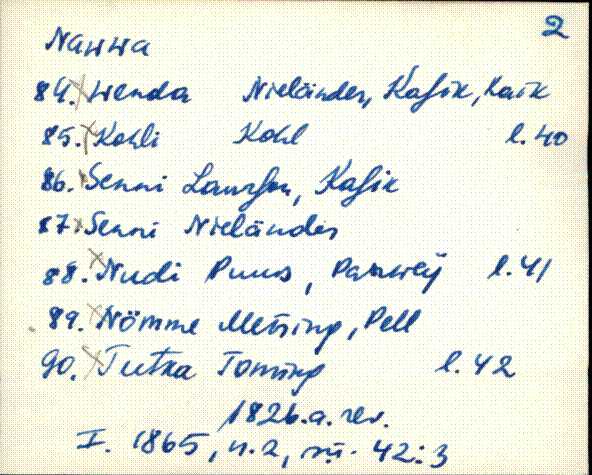 2
Nawwa
84. Wenda Nieländer, Kasik, Kaik
85. Kohli Kohl l. 40
86. Senni Laursson, Kasik
87. Senni Nieländer
88. Nudi Puus, Parwey l. 41
89. Nömme Metsing, Pell
90. Tutka Toming l. 42
1826.a. rev.
I. 1865, n. 2, sü. 42:3